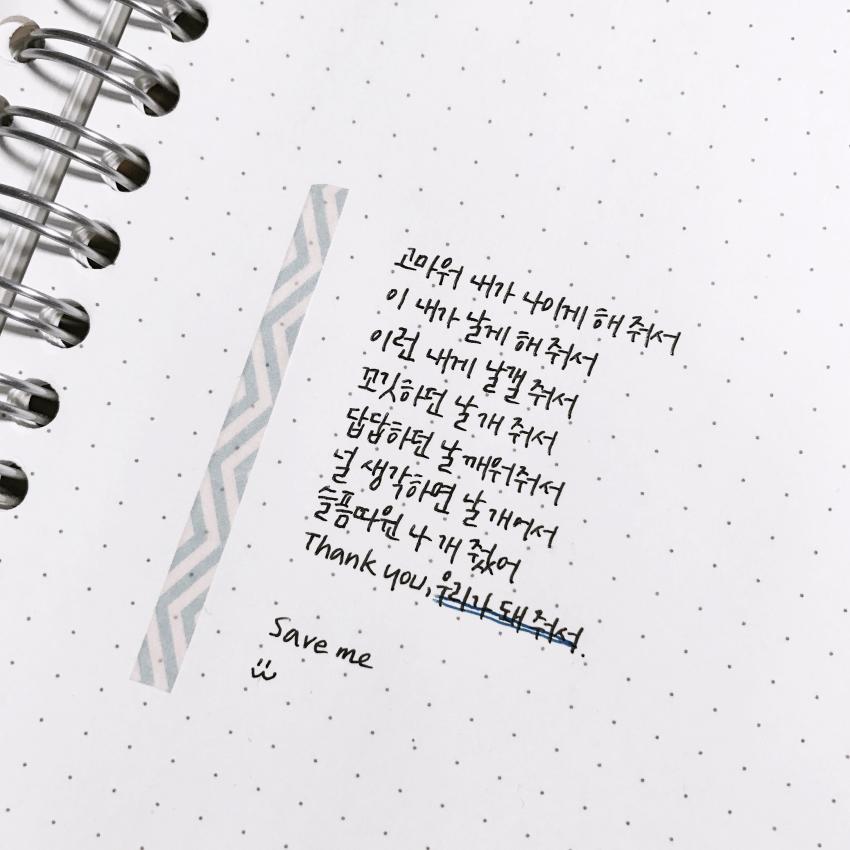 고마워 내가 나이게 해 줘서
이 내가 날게 해 줘서
이런 내게 날갤 줘서
꼬깃하던 날 개 줘서
답답하던 날 깨워줘서
널 생각하면 날 개어서
슬픔따윈 나 개 줬어
Thank you, 우리가 돼 줘서.
Save me